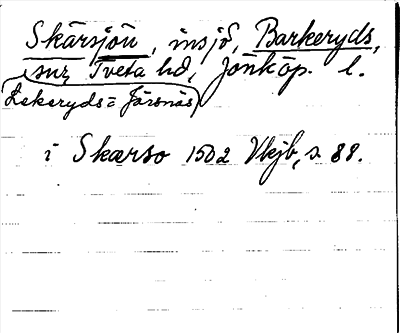 Skärsjön, insjö, Barkeryds,
snr Tveta hd, Jönköp. l.
(Lekeryds = Järsnäs)
i Skærso 1502 Vkjb, s. 88.